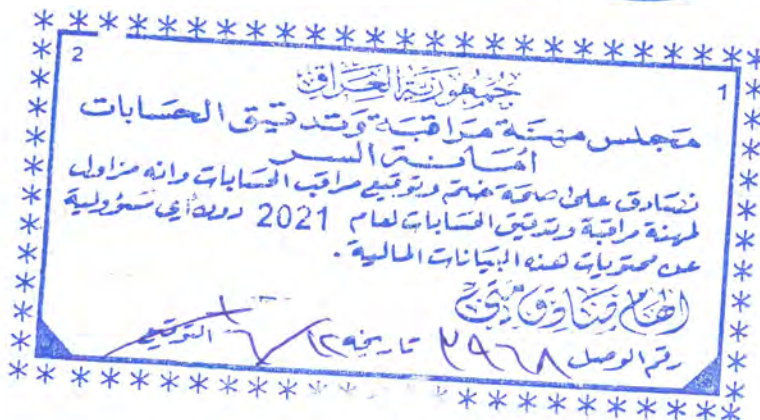 2 1
جمهورية العراق
مجلس مهنة مراقبة وتدقيق الحسابات
أمانة السر
نصادق على صحة ختم وتوقيع مراقب الحسابات وانه مزاول
لمهنة مراقبة وتدقيق الحسابات لعام 2021 دون أي مسؤولية
عن محتويات هذه البيانات المالية .
رقم الوصل ٣٩٦٨ تاريخه ١٢/٦ التوقيع